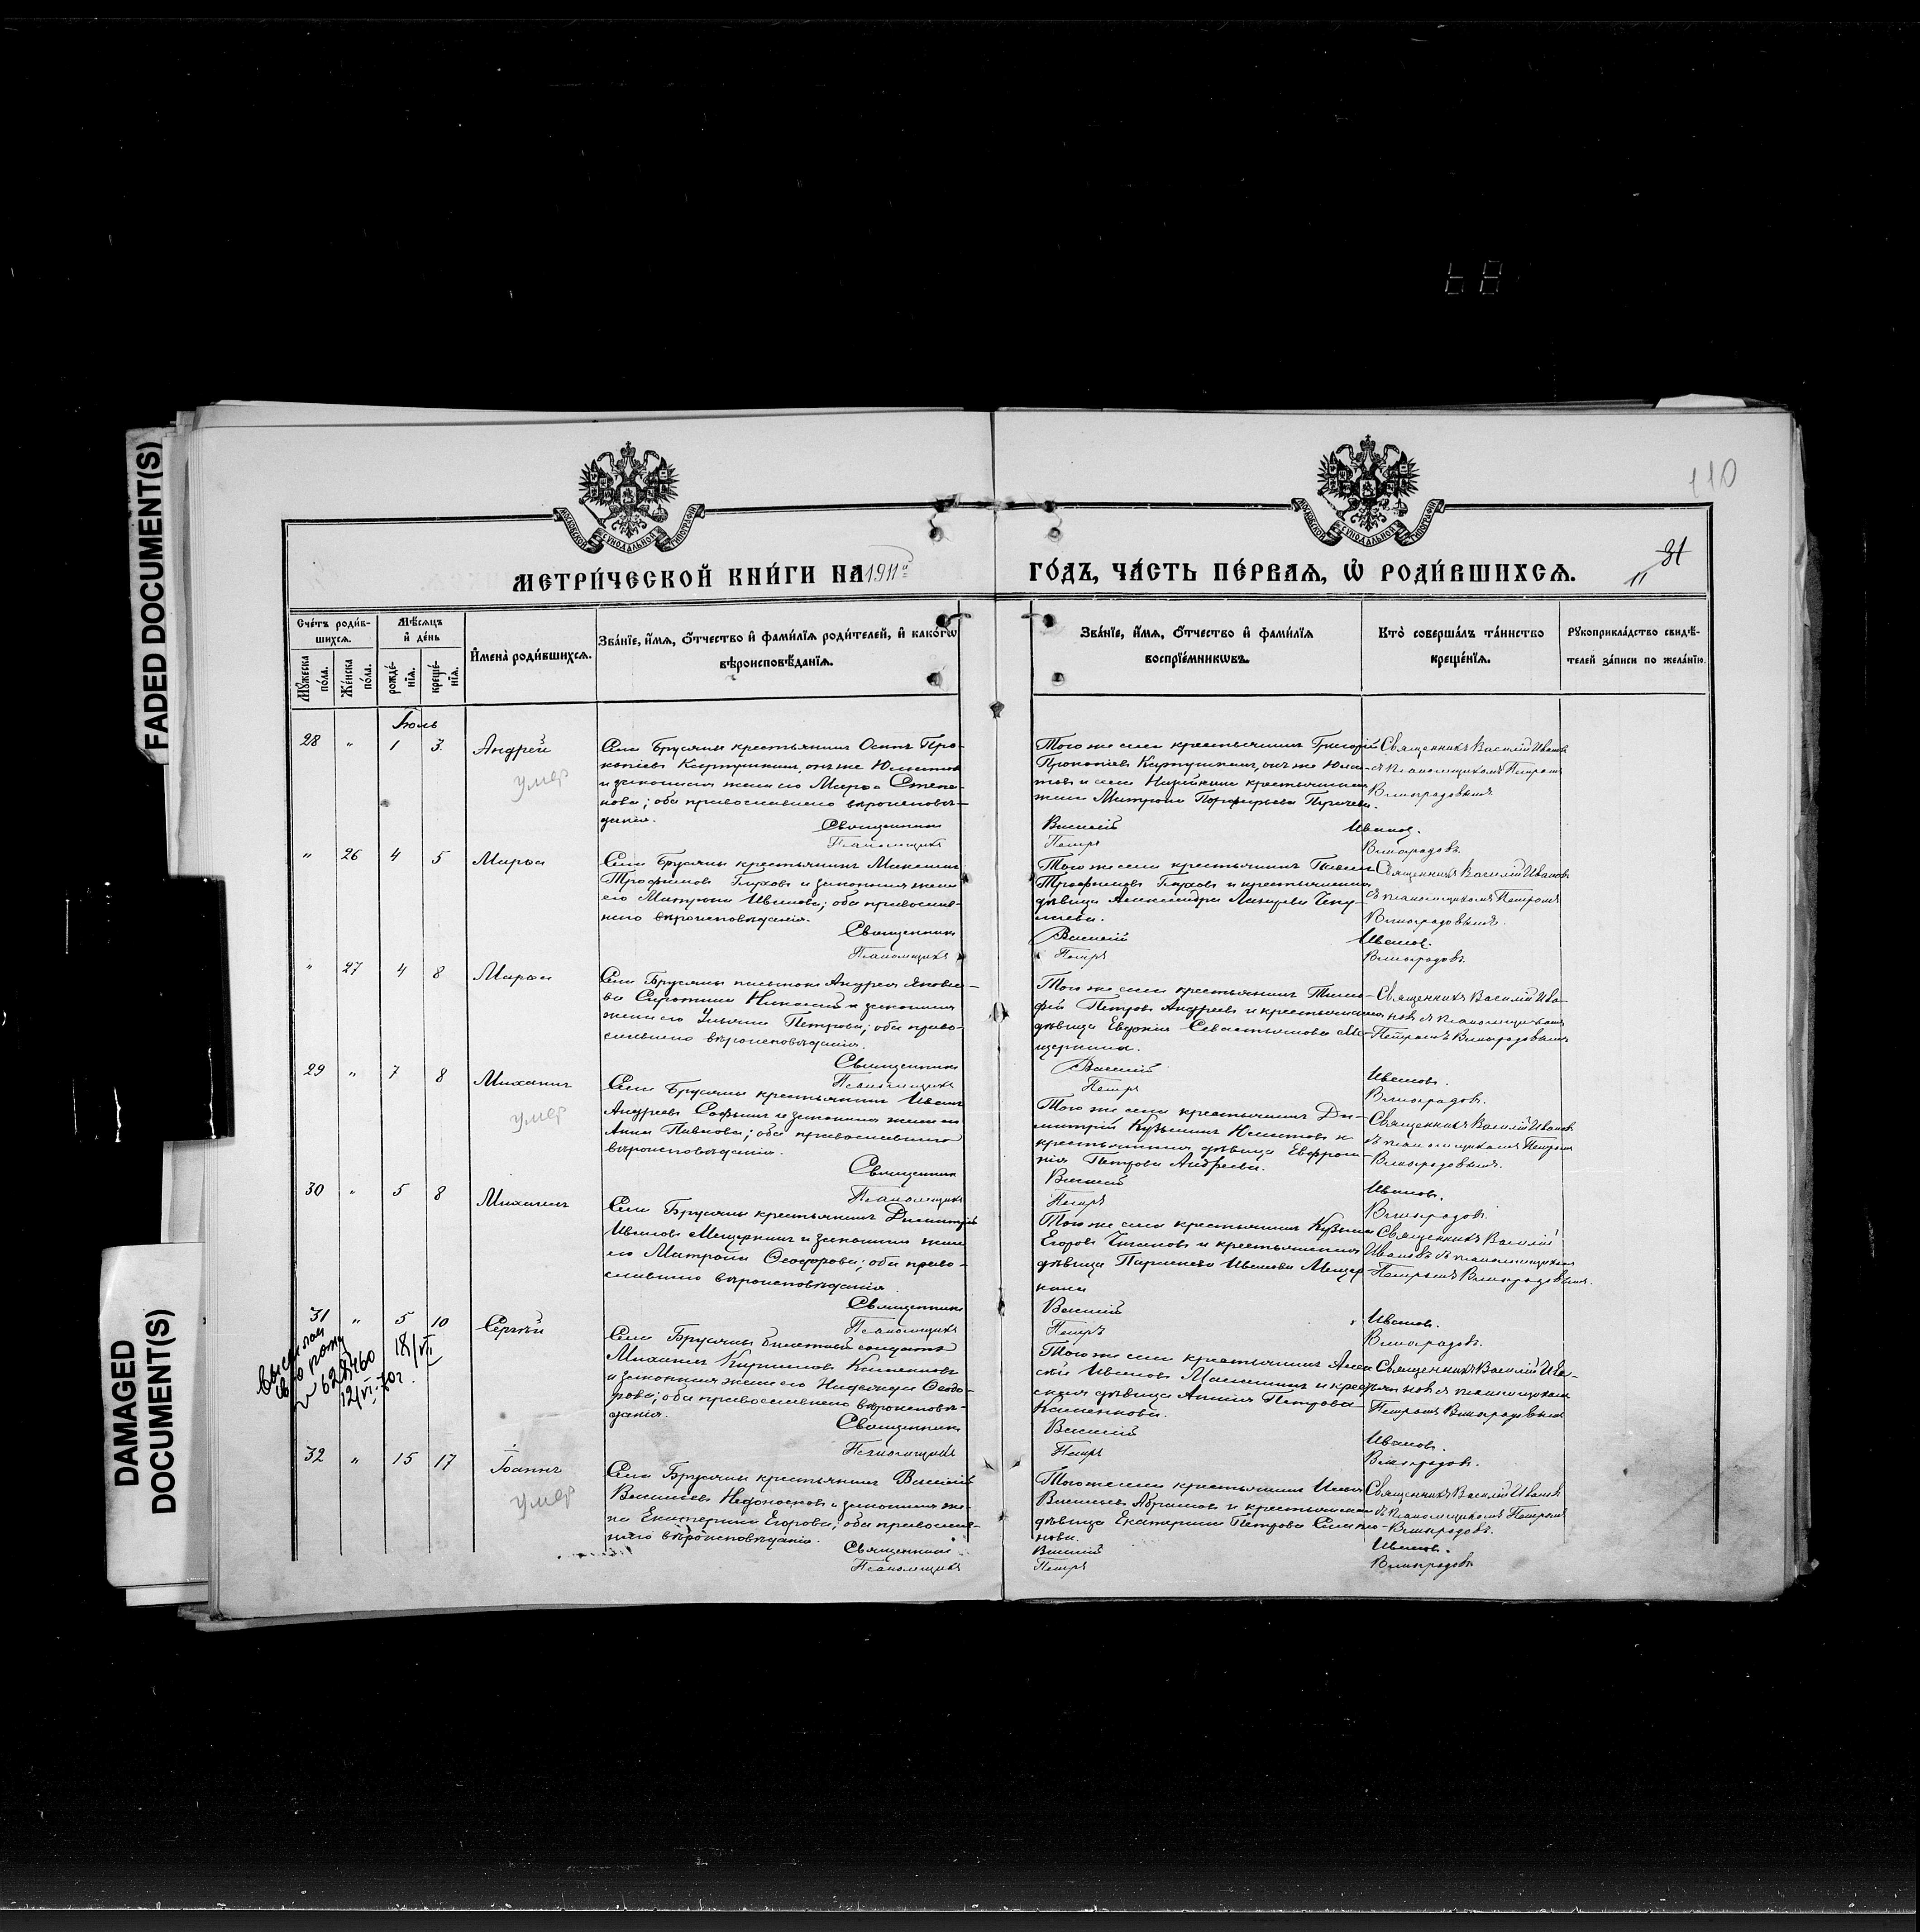 FADED DOCUMENT(S)
DAMAGED
DOCUMENT(S)
110
МОСКОВСКОЙ СѴНОДАЛЬНОЙ ТИПОГРАФІИ
МОСКОВСКОЙ СѴНОДАЛЬНОЙ ТИПОГРАФІИ
МЕТРИ́ЧЕСКОЙ КНИ́ГИ НА 1911й
ГО́ДЪ, ЧА́СТЬ ПЕ́РВАѦ, Ѡ҆ РОДИ́ВШИХСѦ.
31
11
Сче́тъ роди́в-
шихсѧ.
Мѣ́сѧцъ
и҆ де́нь
Мꙋ́жеска
по́ла.
Же́нска
по́ла.
рожде́-
нїѧ.
креще́-
нїѧ.
И҆мена̀ роди́вшихсѧ.
Зва́нїе, и҆́мѧ, ѻ҆́тчество и҆ фами́лїѧ роди́телей, и҆ како́гѡ
вѣроисповѣ́данїѧ.
Зва́нїе, и҆́мѧ, ѻ҆́тчество и҆ фами́лїѧ
воспрїе́мникѡвъ.
Кто̀ соверша́лъ та́инство
креще́нїѧ.
Рꙋкоприкла́дство свидѣ́-
телей за́писи по жела́нїю.
Іюль
28 " 1 3 Андрей
умер
Села Брусяны крестьянинъ Осипъ Про-
копіевъ Картункинъ, онъ же
и законная жена его Марѳа Степа-
нова; оба православнаго вѣроисповѣ-
данія.
Священникъ
Псаломщикъ
Того же села крестьянинъ Григорій
Прокопіевъ онъ же
крестьянская
жена Матрона Порфирьева
Василій
Петръ
Священникъ Василій Ивановъ
съ псаломщикомъ Петромъ
Виноградовымъ.
Ивановъ.
Виноградовъ.
" 26 4 5 Марѳа
Села Брусяны крестьянинъ
Трофимовъ Глуховъ и законная жена
его Матрона Иванова; оба православ-
наго вѣроисповѣданія.
Священникъ
Псаломщикъ
Того же села крестьянинъ Павелъ
Трофимовъ Глуховъ и крестьянская
дѣвица Александра
Василій
Петръ
Священникъ Василій Ивановъ
съ псаломщикомъ Петромъ
Виноградовымъ.
Ивановъ.
Виноградовъ.
" 27 4 8 Марѳа
Села Брусяны Андрея Яковле-
ва законная
жена его Ульяна Петрова; оба право-
славнаго вѣроисповѣданія.
Священникъ
Псаломщикъ
Того же села крестьянинъ Тимо-
фей Петровъ Андреевъ и крестьянская
дѣвица Евдокія Севастьянова Ме-
щеркина.
Василій
Петръ
Священникъ Василій Ива-
новъ съ псаломщикомъ
Петромъ Виноградовымъ
Ивановъ.
Виноградовъ.
29 " 7 8 Михаилъ
умер
Села Брусяны крестьянинъ Иванъ
Андреевъ и законная жена его
Анна Павлова; оба православнаго
вѣроисповѣданія.
Священникъ
Псаломщикъ
Того же села крестьянинъ Ди-
митрій Кузьминъ и
крестьянская дѣвица Евфроси-
нія Петрова Андреева.
Василій
Петръ
Священникъ Василій Ивановъ
съ псаломщикомъ Петромъ
Виноградовымъ.
Ивановъ.
Виноградовъ.
30 " 5 8 Михаилъ
Села Брусяны крестьянинъ Димитрій
Ивановъ Мещеркинъ и законная жена
его Матрона Ѳеодорова; оба право-
славнаго вѣроисповѣданія.
Священникъ
Псаломщикъ
Того же села крестьянинъ Кузьма
Егоровъ и крестьянская
дѣвица Параскева Иванова Мещер-
кина
Василій
Петръ
Священникъ Василій
Ивановъ съ псаломщикомъ
Петромъ Виноградовымъ.
Ивановъ.
Виноградовъ.
31 " 5 10 Сергѣй
18/VII
12/VI-70г.
Села Брусяны билетный солдатъ
Михаилъ Кирилловъ Каменковъ
и законная жена его Надежда Ѳеодо-
рова; оба православнаго вѣроисповѣ-
данія.
Священникъ
Псаломщикъ
Того же села крестьянинъ Алек-
сѣй Ивановъ и крестьян-
ская дѣвица Анна Петрова
Каменкова.
Василій
Петръ
Священникъ Василій Ива-
новъ съ псаломщикомъ
Петромъ Виноградовымъ
Ивановъ.
Виноградовъ.
32 " 15 17 Іоаннъ
умер
Села Брусяны крестьянинъ Василій
Васильевъ Недоносковъ и законная же-
на Екатерина Егорова; оба православ-
наго вѣроисповѣданія.
Священникъ
Псаломщикъ
Того же села крестьянинъ
Васильевъ Абрамовъ и крестьянская
дѣвица Екатерина Петрова
Василій
Петръ
Священникъ Василій Ивановъ
съ псаломщикомъ Петромъ
Виноградовъ.
Ивановъ.
Виноградовъ.